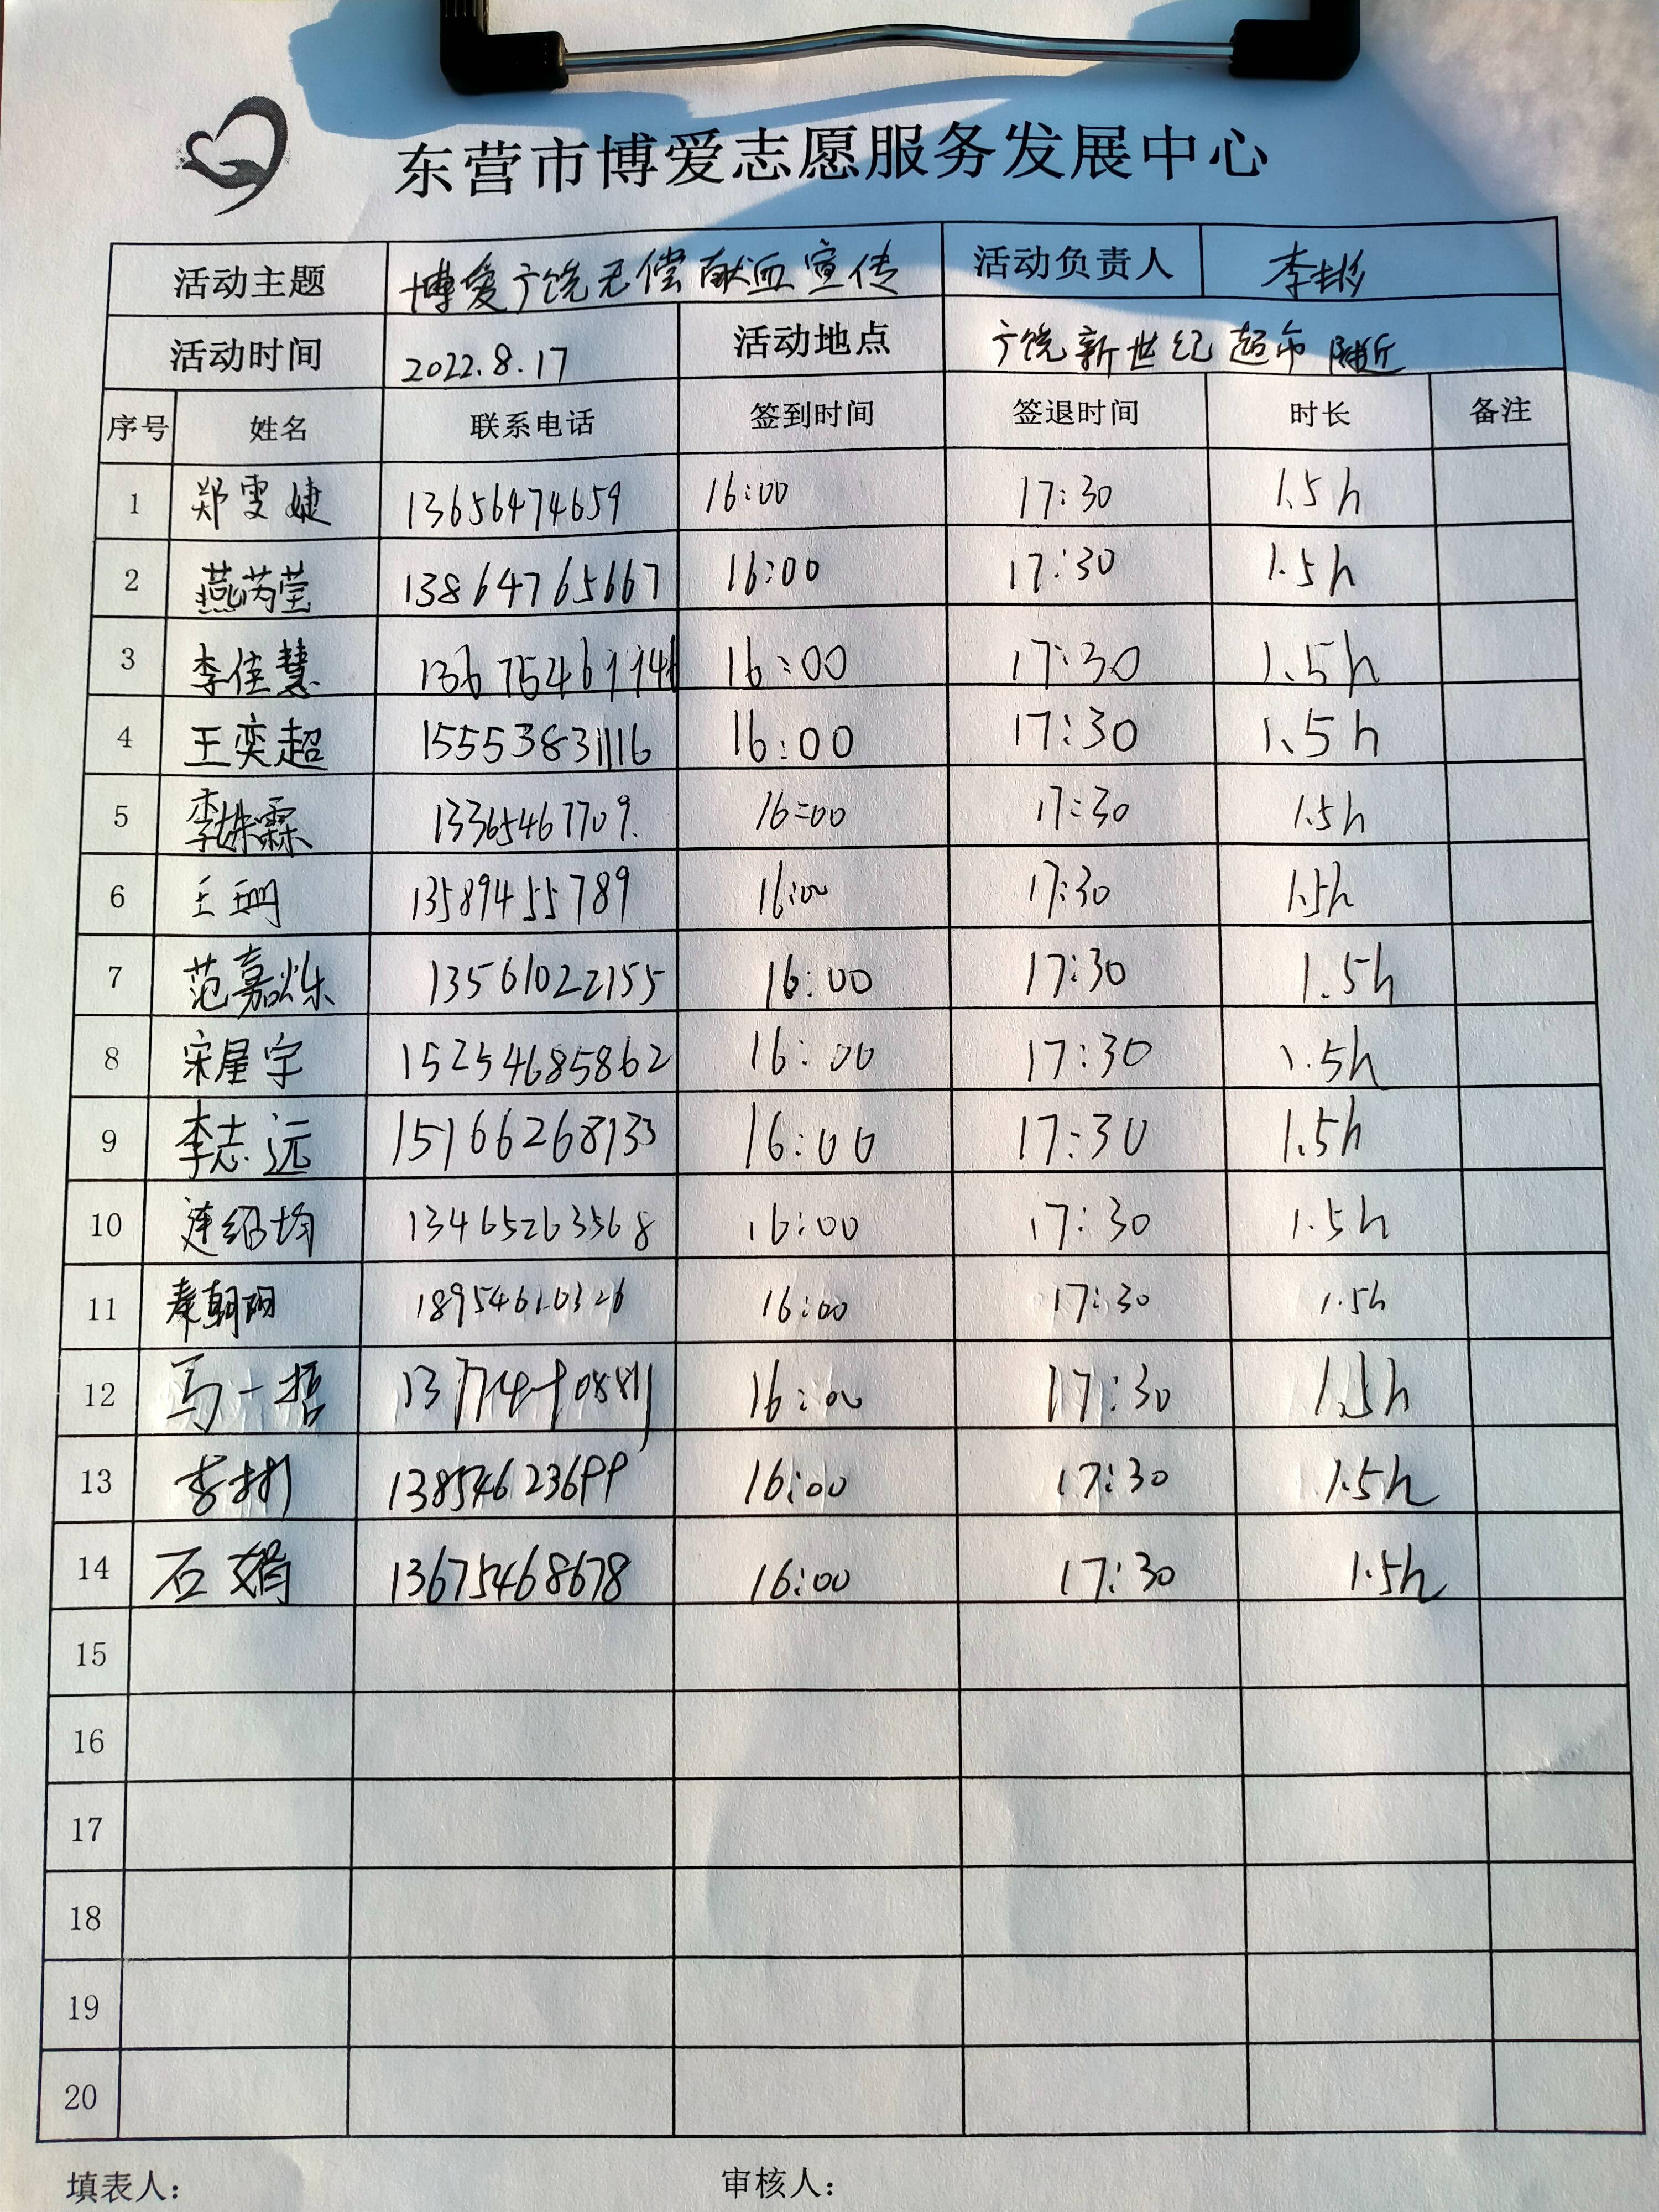 东营市博爱志愿服务发展中心
活动主题 博爱广饶无偿献血宣传 活动负责人 李彬
活动时间 2022.8.17 活动地点 广饶新世纪超市附近
序号 姓名 联系电话 签到时间 签退时间 时长 备注
1 郑雯婕 13656474659 16:00 17:30 1.5h
2 燕芮莹 13864765667 16:00 17:30 1.5h
3 李佳慧 16:00 17:30 1.5h
4 王奕超 15553831116 16:00 17:30 1.5h
5 李姝霖 13365467709. 16:00 17:30 1.5h
6 王珊 13589455789 16:00 17:30 1.5h
7 范嘉烁 13561022155 16:00 17:30 1.5h
8 宋星宇 15254685862 16:00 17:30 1.5h
9 李志远 15166268133 16:00 17:30 1.5h
10 连绍均 13465263568 16:00 17:30 1.5h
11 秦朝阳 16:00 17:30 1.5h
12 马一哲 16:00 17:30 1.5h
13 李彬 13854623699 16:00 17:30 1.5h
14 石娟 13675468678 16:00 17:30 1.5h
15
16
17
18
19
20
填表人： 审核人：